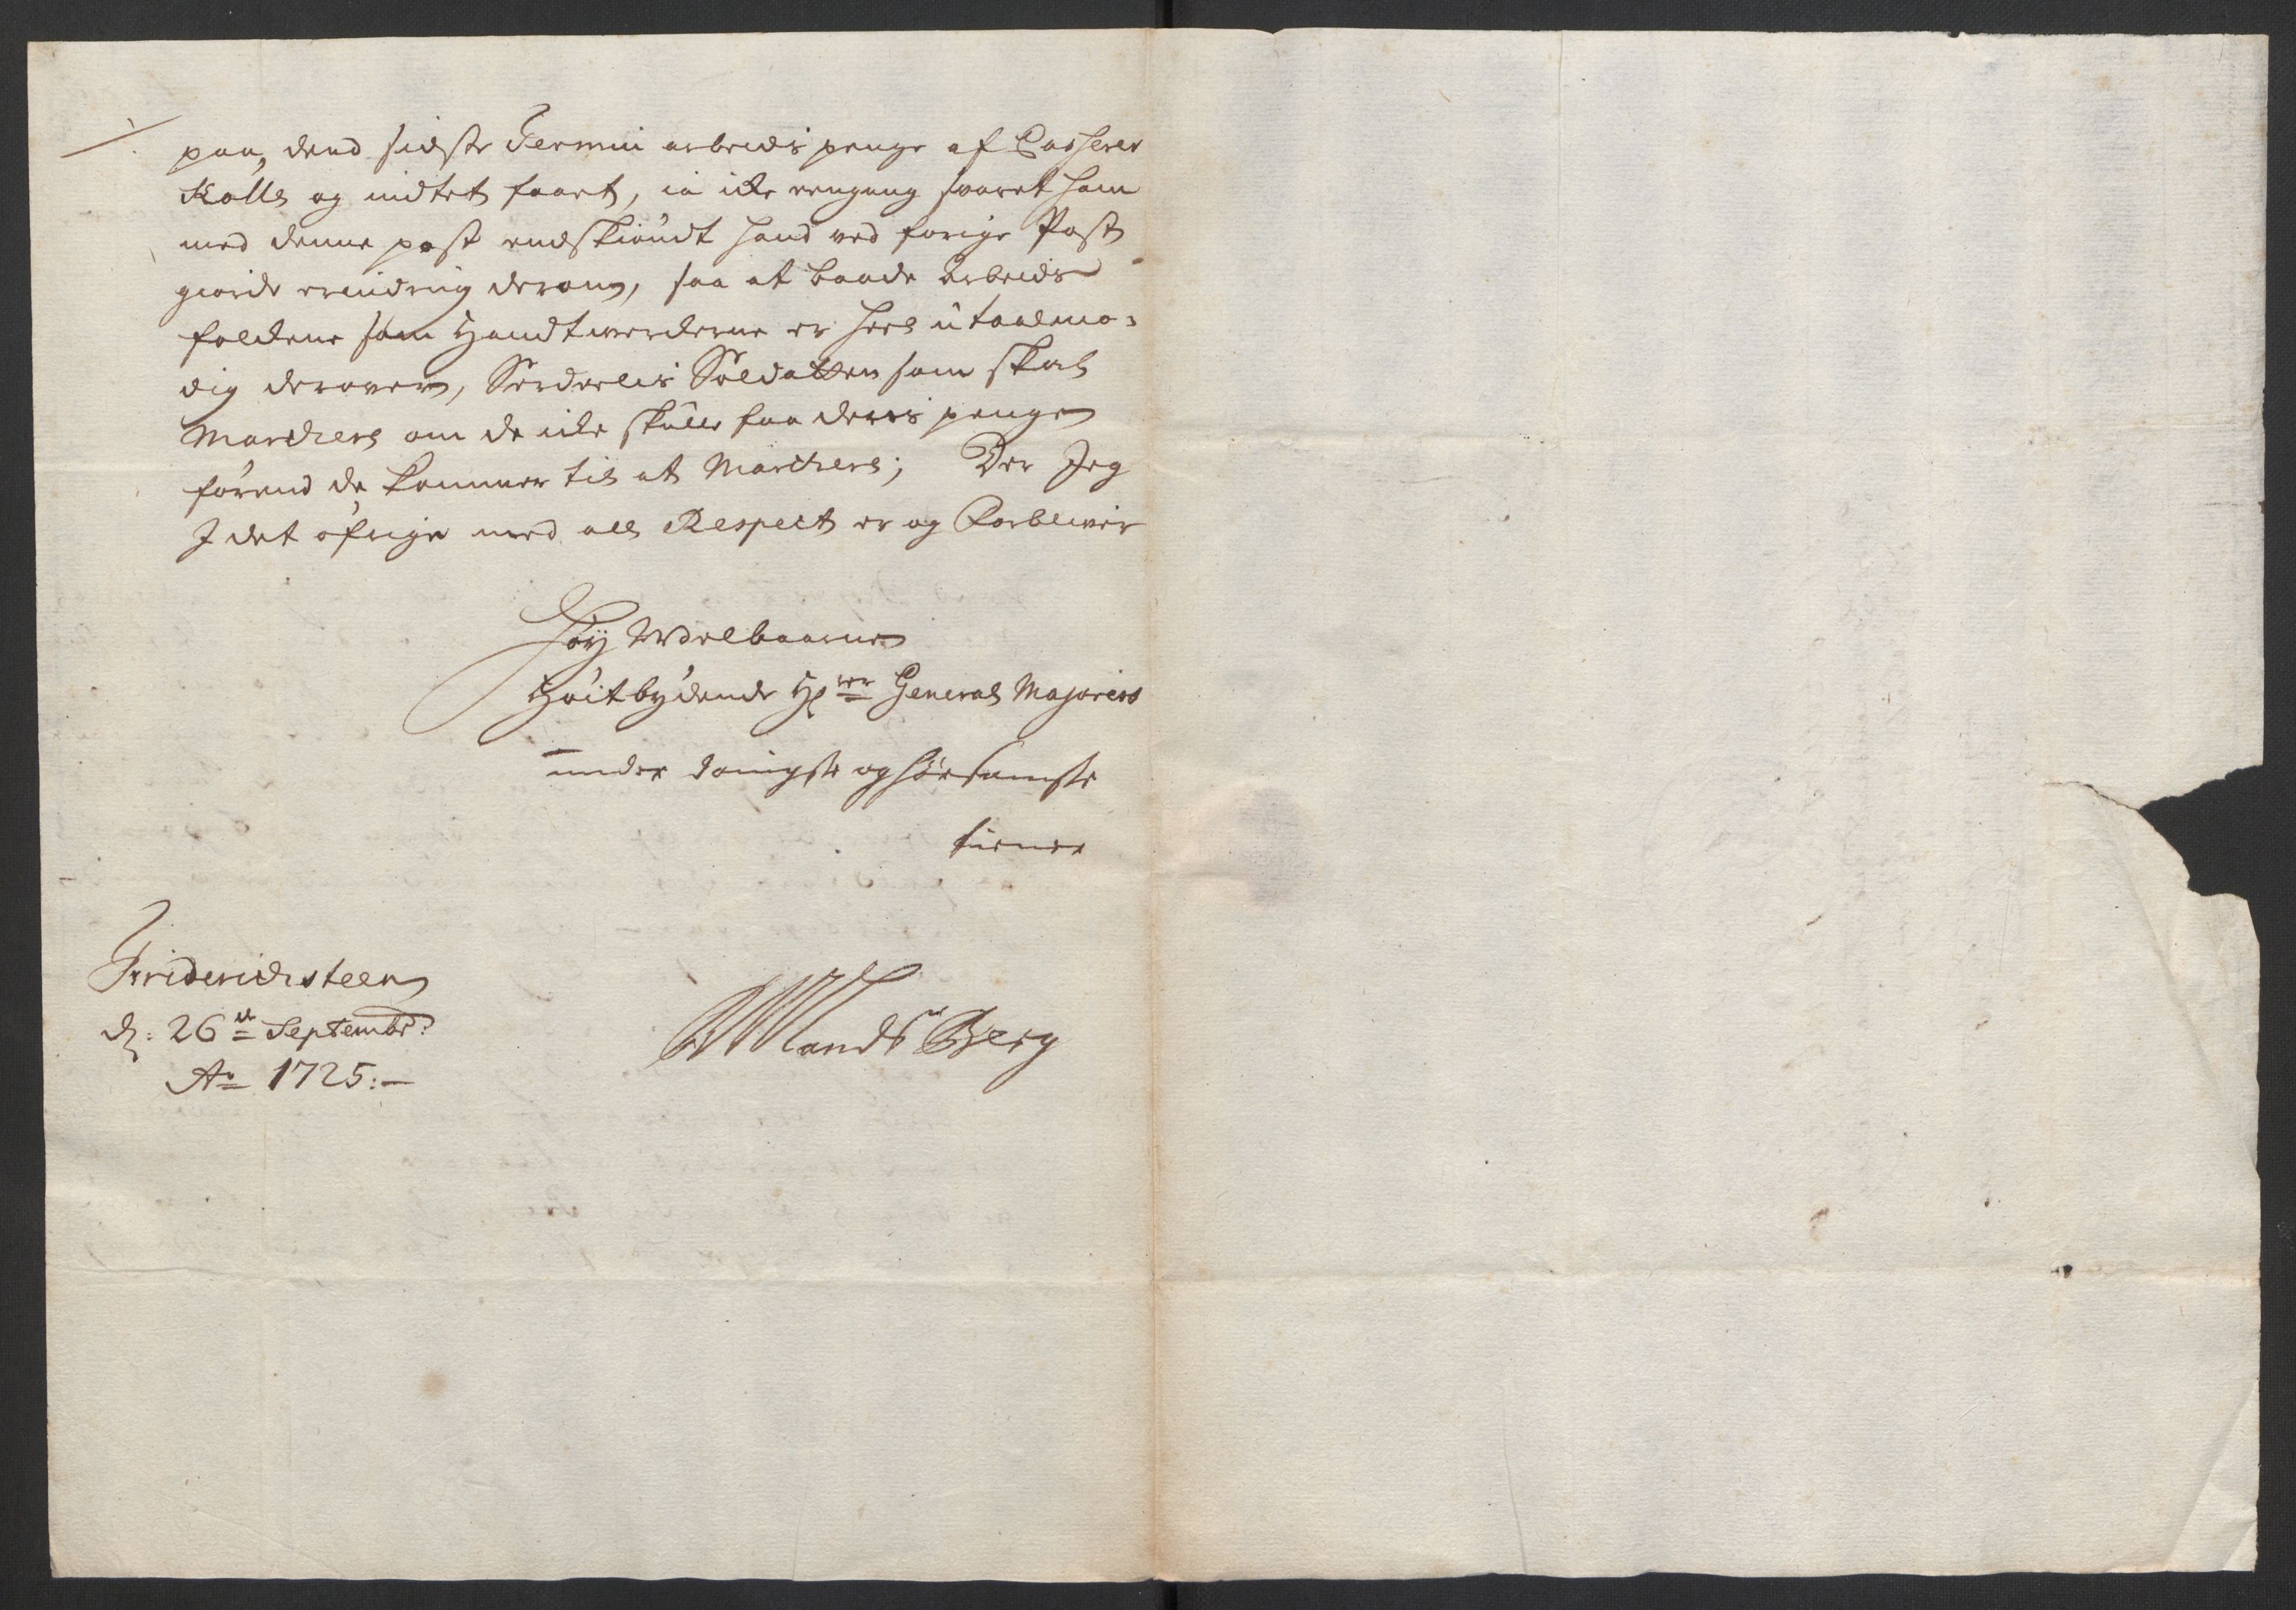 paa, dend sidste Termin arbeids penge af Casserer
Kolle og indtet faaet, ia icke eengang svaret ham
med denne post endskiöndt hand ved forige Post
giorde erindring derom, saa at baade Arbeids
folckene som Handtwerckerne er heel utaalmo-
dig derover, Særdeelis Soldatten som skal
Marchere om de icke skulle faa deris penge
förend de kommer til at Marchere; Der Jeg
I det öfrige med all Respect er og Forblivir
Höy Wælbaarne
Höitbydende Hr. General Majorens
under danigste og hörsamste
tiener
Fridericksteen
d: 26de Septembr:
Ao 1725:-
Mandt Berg